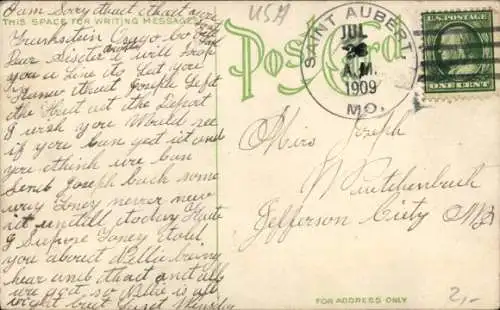 I am Sorry thact thact are
THIS SPACE FOR WRITING MESSAGES
Dear Sister I will drop
you a line to Let you
Know thact Joseph Left
the Hact act the Depot
I wish you Would see
if you can get it and
you think we can
Send Joseph back some
way Toney never new
it untill today Kate
I Supose Toney told
you aboact Nellie being
hear and thact and all
we got so Nellie is all
wright but
USA
Post Card
SAINT AUBERT,
JUL
26
A.M.
1909
MO.
U.S. POSTAGE
ONE CENT
Mirs Joseph
Jefferson City Mo
FOR ADDRESS ONLY
2,-